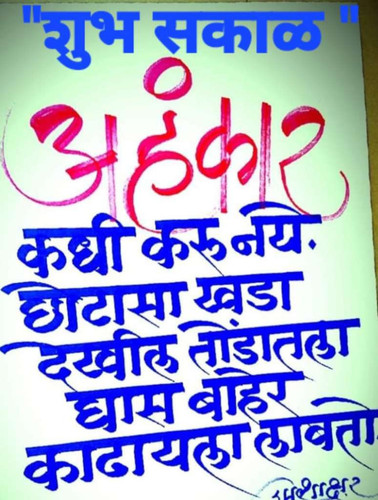 "शुभ सकाळ "
अहंकार
कधी करू नये.
छोटासा खडा
देखील तोंडातला
घास बाहेर
काढायला लावतो